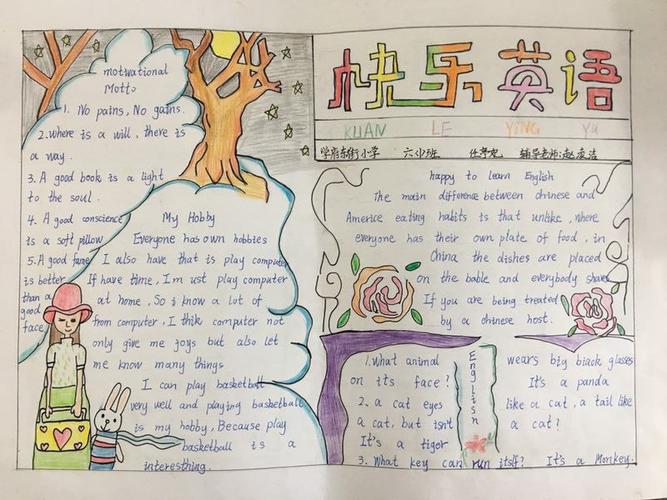 motivational
Motto
1. No pains, No gains.
2. where is a will, there is
a way.
3. A good book is a light
to the soul.
4. A good conscience
is a soft pillow
5. A good fame
is better
than a
good
face
My Hobby
Everyone has own hobbies
I also have that is play computer
If have time, I'm ust play computer
at home, So i know a lot of
from computer, I thik computer not
only give me joys but also let
me know many things
I can play basketball
very well and playing basketball
is my hobby, Because play
basketball is a
interesthing.
快乐英语
KUAN LE YING YU
学府东街小学 六 班 辅导老师:赵凌洁
happy to learn English
The main difference between chinese and
Americe eating habits is that unlike, where
everyone has their own plate of food, in
China the dishes are placed
on the bable and everybody shares
If you are being treated
by a chinese host.
1. what animal wears big biack glasses
on its face? It's a panda
2. a cat eyes like a cat, a tail like
a cat, but isn't a cat?
It's a tiger
English
3. What key can run itself? It's a Monkey.